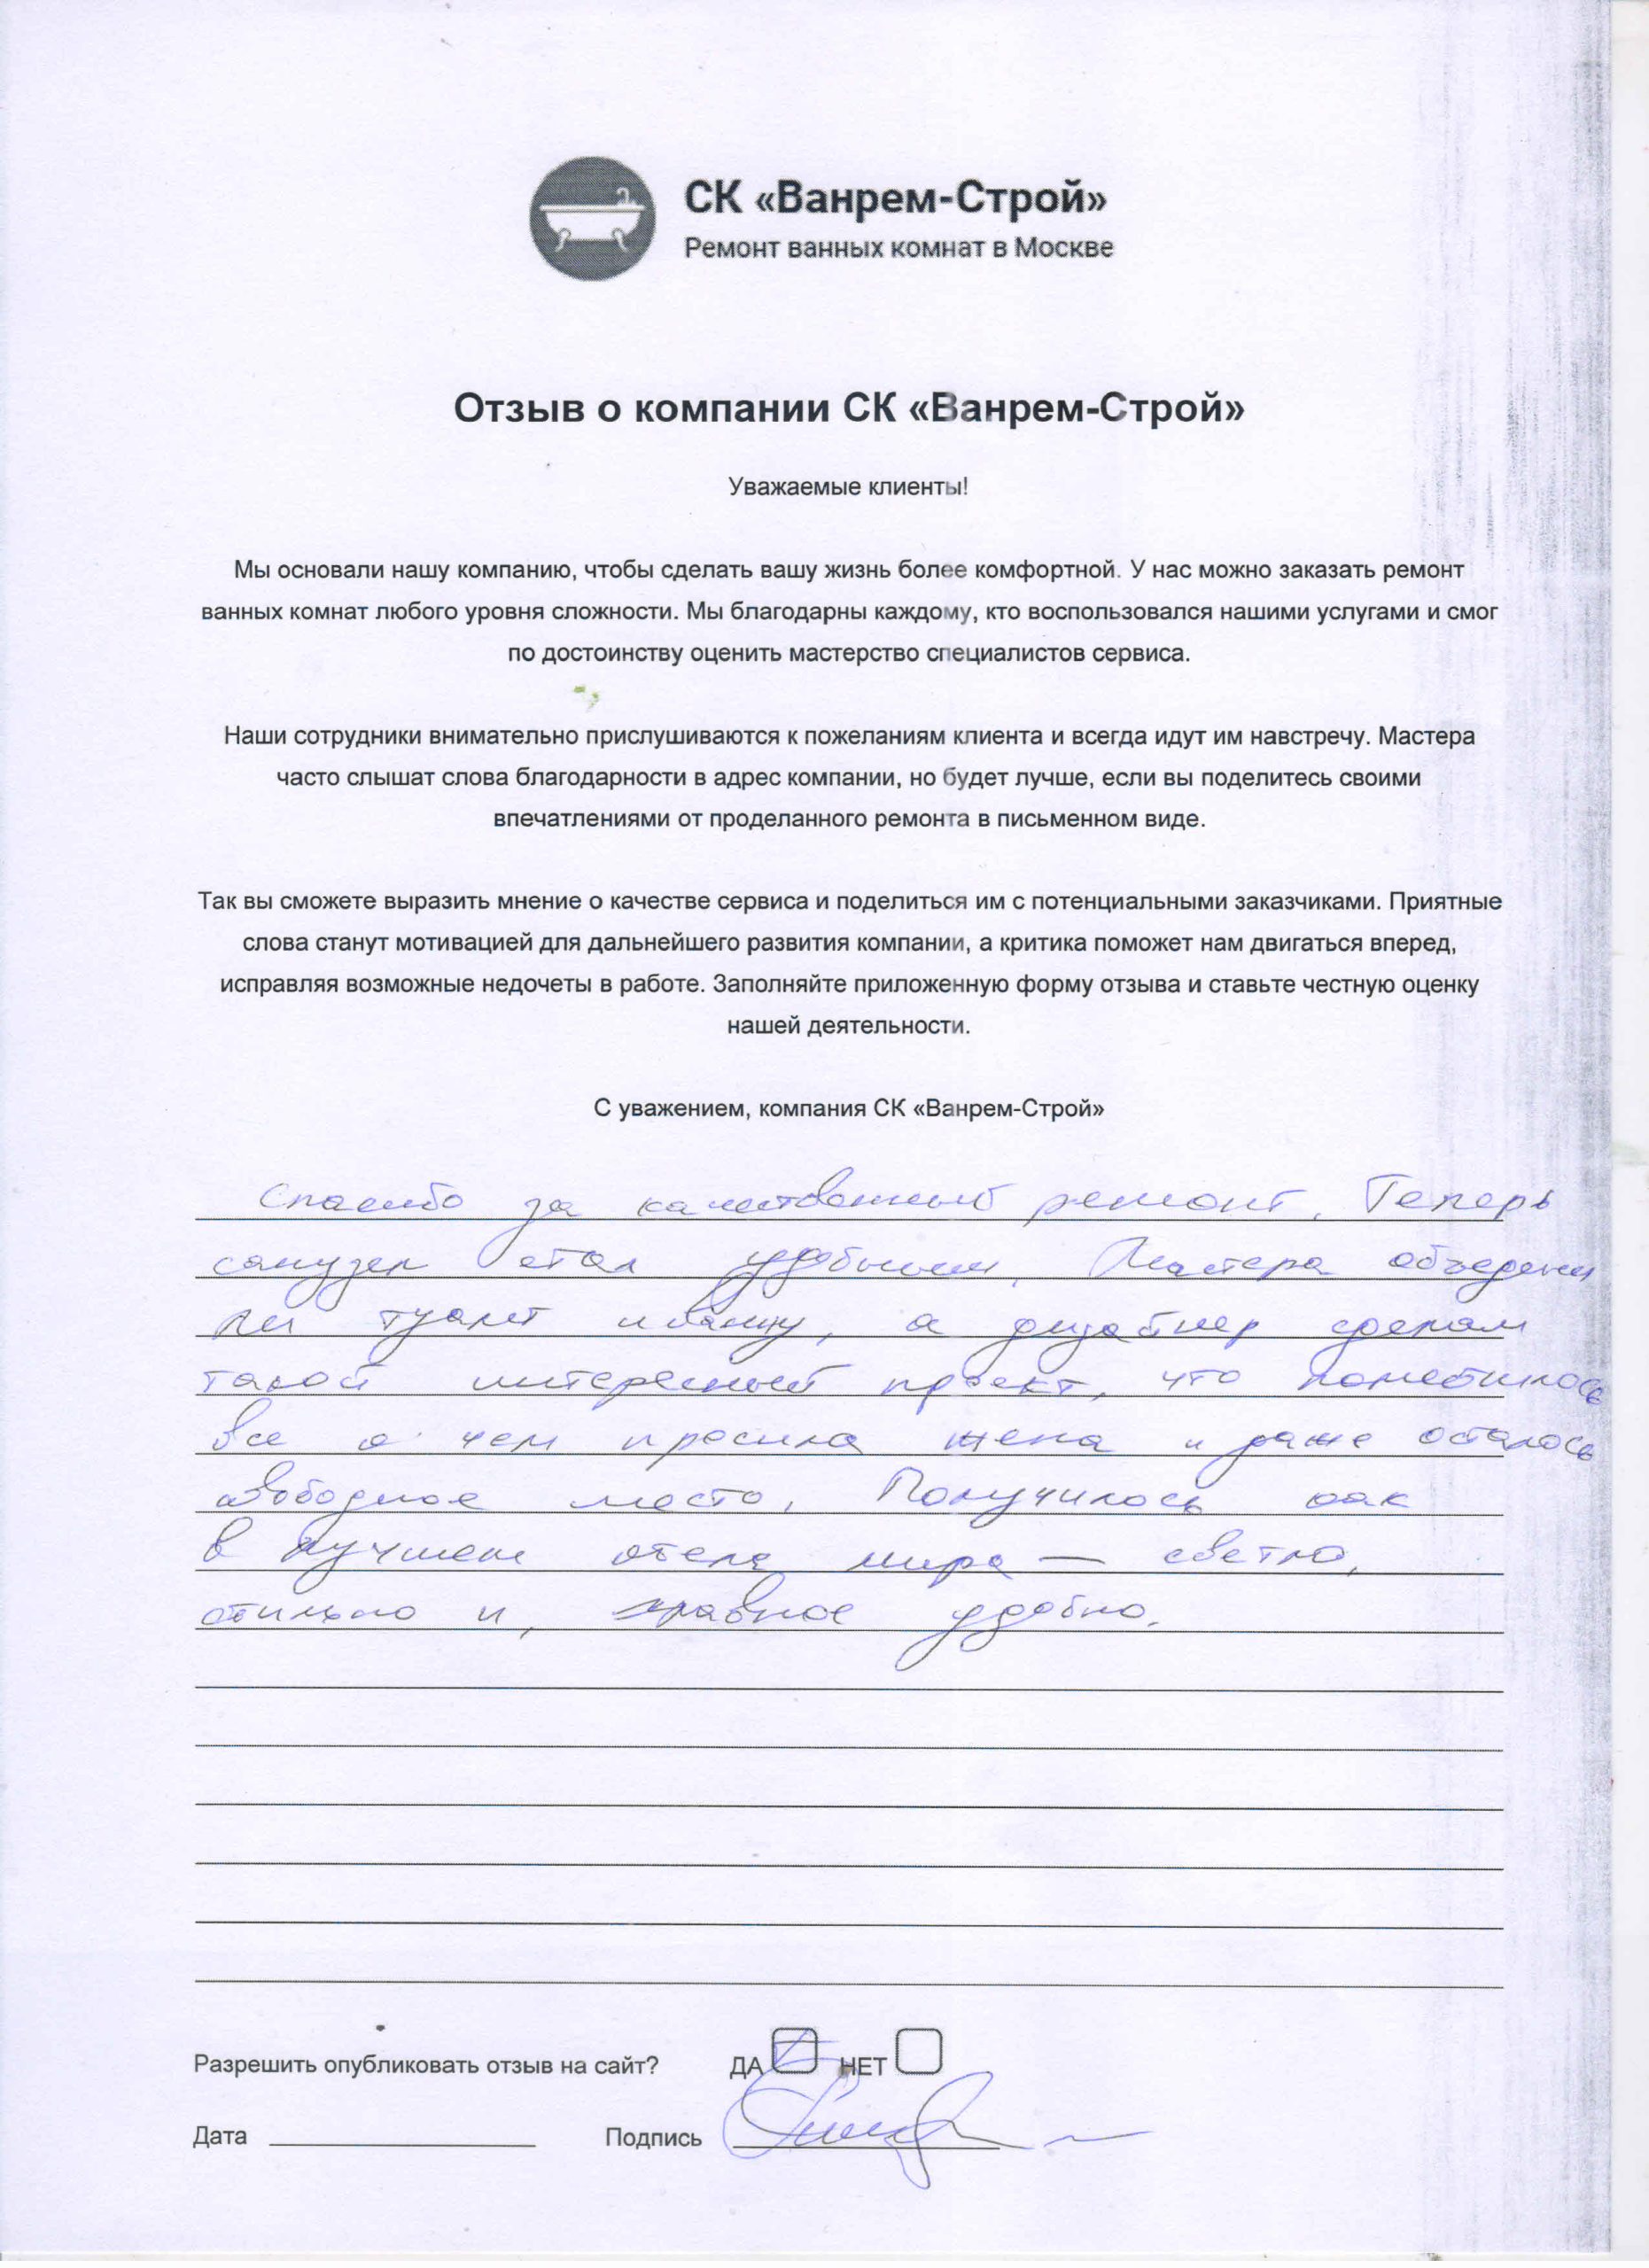 СК «Ванрем-Строй»
Ремонт ванных комнат в Москве
Отзыв о компании СК «Ванрем-Строй»
Уважаемые клиенты!
Мы основали нашу компанию, чтобы сделать вашу жизнь более комфортной. У нас можно заказать ремонт
ванных комнат любого уровня сложности. Мы благодарны каждому, кто воспользовался нашими услугами и смог
по достоинству оценить мастерство специалистов сервиса.
Наши сотрудники внимательно прислушиваются к пожеланиям клиента и всегда идут им навстречу. Мастера
часто слышат слова благодарности в адрес компании, но будет лучше, если вы поделитесь своими
впечатлениями от проделанного ремонта в письменном виде.
Так вы сможете выразить мнение о качестве сервиса и поделиться им с потенциальными заказчиками. Приятные
слова станут мотивацией для дальнейшего развития компании, а критика поможет нам двигаться вперед,
исправляя возможные недочеты в работе. Заполняйте приложенную форму отзыва и ставьте честную оценку
нашей деятельности.
С уважением, компания СК «Ванрем-Строй»
Спасибо за качественный ремонт. Теперь
санузел стал удобным. Мастера объедини
ли туалет и ванну, а дизайнер сделал
такой интересный проект, что поместилось
все о чем просила жена и даже осталось
свободное место. Получилось как
в лучшем отеле мира — светло,
стильно и, главное удобно.
Разрешить опубликовать отзыв на сайт? ДА НЕТ
Дата Подпись